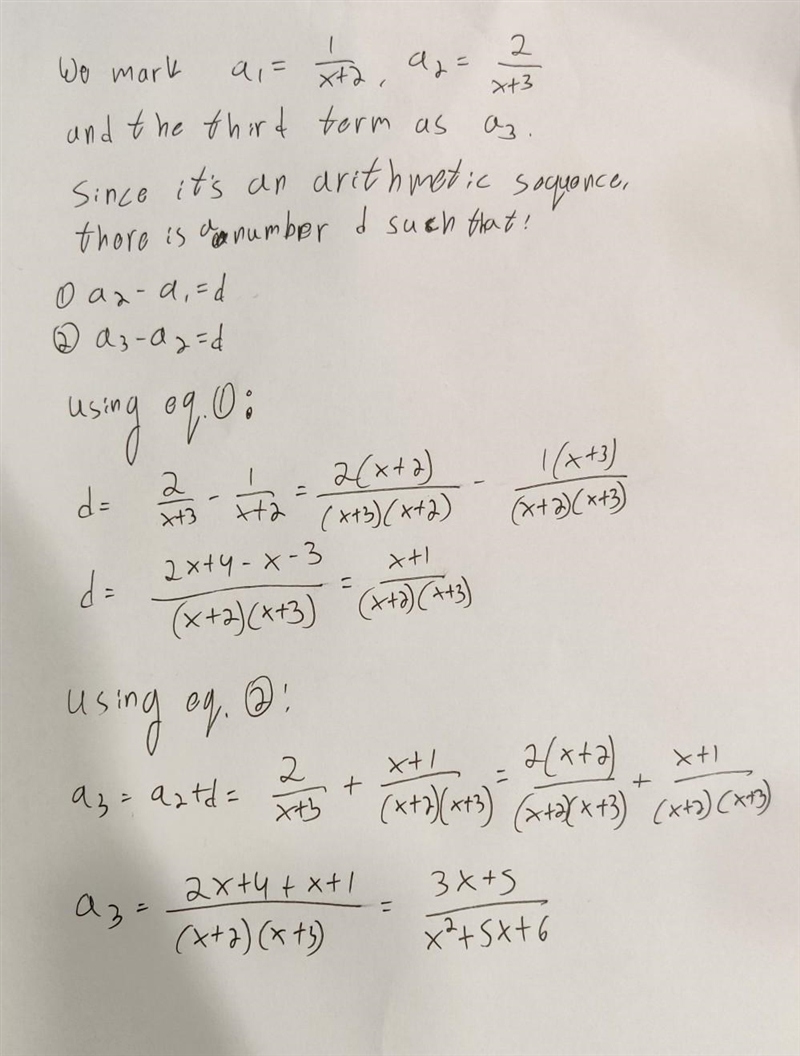 We mark a₁ = 1/(x+2), a₂ = 2/(x+3)
and the third term as a₃.
Since it's an arithmetic sequence,
there is a number d such that:
① a₂ - a₁ = d
② a₃ - a₂ = d
using eq. ①:
d = 2/(x+3) - 1/(x+2) = 2(x+2)/((x+3)(x+2)) - 1(x+3)/((x+2)(x+3))
d = (2x+4-x-3)/((x+2)(x+3)) = (x+1)/((x+2)(x+3))
using eq. ②:
a₃ = a₂+d = 2/(x+3) + (x+1)/((x+2)(x+3)) = 2(x+2)/((x+2)(x+3)) + (x+1)/((x+2)(x+3))
a₃ = (2x+4+x+1)/((x+2)(x+3)) = (3x+5)/(x²+5x+6)